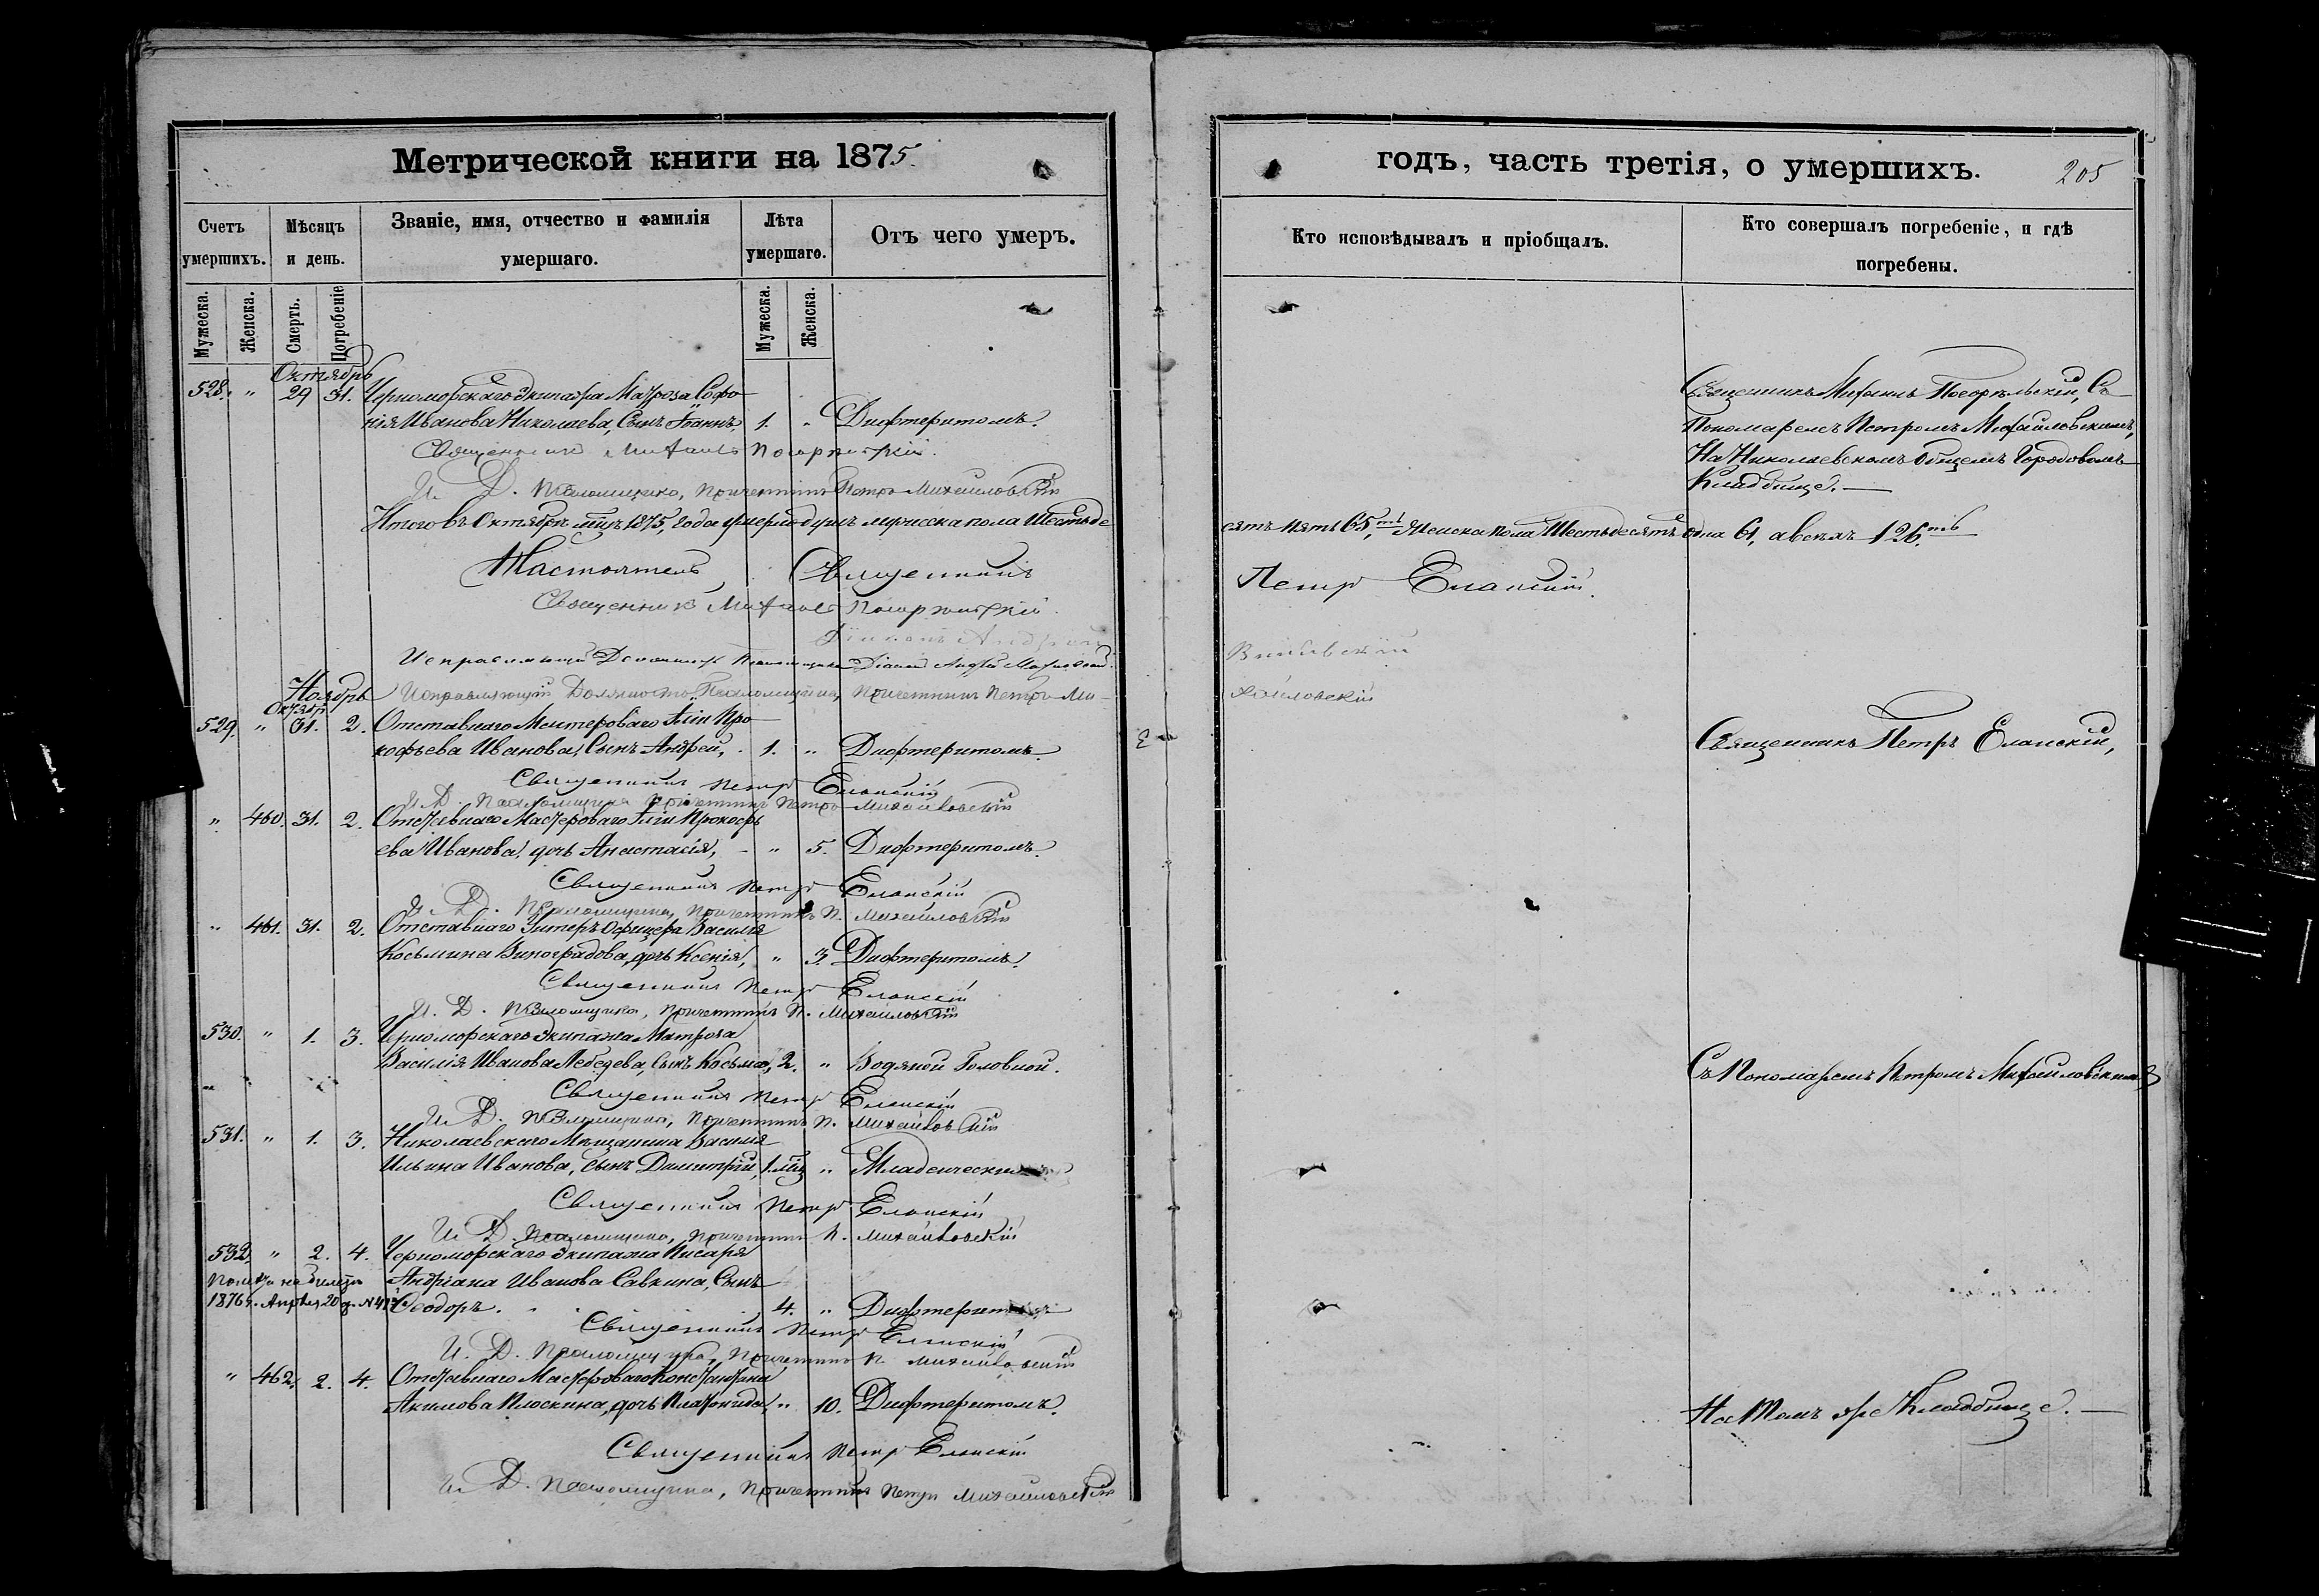 Метрической книги на 1875.
Счетъ умершихъ.
Мѣсяцъ и день.
Званіе, имя, отчество и фамилія умершаго.
Лѣта умершаго.
Отъ чего умеръ.
Мужеска. Женска. Смерть. Погребеніе
Мужеска. Женска.
Октябрь
528. " 29 31. Черноморскаго Экипажа Матроза Софо
нія Иванова Николаева, Сынъ Іоаннъ 1. " Дифтеритомъ.
Священникъ Михаилъ
И. Д. Псаломщика, Причетникъ Петръ Михайловскій
Итого въ Октябрѣ мцѣ 1875, года умерло душъ мужеска пола Шестьде
Настоятель Священникъ
Священникъ Михаилъ
Діаконъ Андрей
Исправляющій Должность Псаломщика Діаконъ Андрей
Исправляющій Должность Псаломщика, Причетникъ Петръ Ми-
Ноябрь
Октяб
529. " 31. 2. Отставнаго Мастероваго Иліи Про
кофьева Иванова, Сынъ Андрей, 1. " Дифтеритомъ.
Священникъ Петръ Еланскій
И. Д. Псаломщика Причетникъ Петръ Михайловскій
" 460. 31. 2. Отставнаго Мастероваго Иліи Прокофь
ева Иванова, дочь Анастасія, - " 5. Дифтеритомъ.
Священникъ Петръ Еланскій
И. Д. Псаломщика, Причетникъ П. Михайловскій
" 461. 31. 2. Отставнаго Унтеръ Офицера Василія
Косьмина Виноградова, дочь Ксенія, " 3. Дифтеритомъ.
Священникъ Петръ Еланскій
И. Д. Псаломщика, Причетникъ П. Михайловскій
530. " 1. 3. Черноморскаго Экипажа Матроза
Василія Иванова Лебедева, Сынъ Косьма, 2. " Водяной Головной.
Священникъ Петръ Еланскій
И. Д. Псаломщика, Причетникъ П. Михайловскій
531. " 1. 3. Николаевскаго Мѣщанина Василія
Ильина Иванова, сынъ Димитрій, 1 мц " Младенческ
Священникъ Петръ Еланскій
И. Д. Псаломщика, Причетникъ П. Михайловскій
532. " 2. 4. Черноморскаго Экипажа Писаря
Андріана Иванова Савкина, Сынъ
1876 г. Апрѣля 20 д.
Ѳеодоръ. 4. " Дифтеритомъ
Священникъ Петръ Еланскій
И. Д. Псаломщика, Причетникъ П. Михайловскій
" 462. 2. 4. Отставнаго Мастероваго Константина
Акимова Плоскина, дочь Платонида, " 10. Дифтеритомъ.
Священникъ Петръ Еланскій
И. Д. Псаломщика, Причетникъ Петръ Михайловскій
годъ, часть третія, о умершихъ.
205
Кто исповѣдывалъ и пріобщалъ.
Кто совершалъ погребеніе, и гдѣ погребены.
Священникъ Михаилъ Съ
Пономаремъ Петромъ Михайловскимъ,
На Николаевскомъ Общемъ Городовомъ
Кладбище.
сятъ пять 65, Женска пола Шестьдесятъ одна 61, а всѣхъ 126.
Петръ Еланскій.
хайловскій
Священникъ Петръ Еланскій,
Съ Пономаремъ Петромъ Михайловскимъ
На томъ же Кладбище.